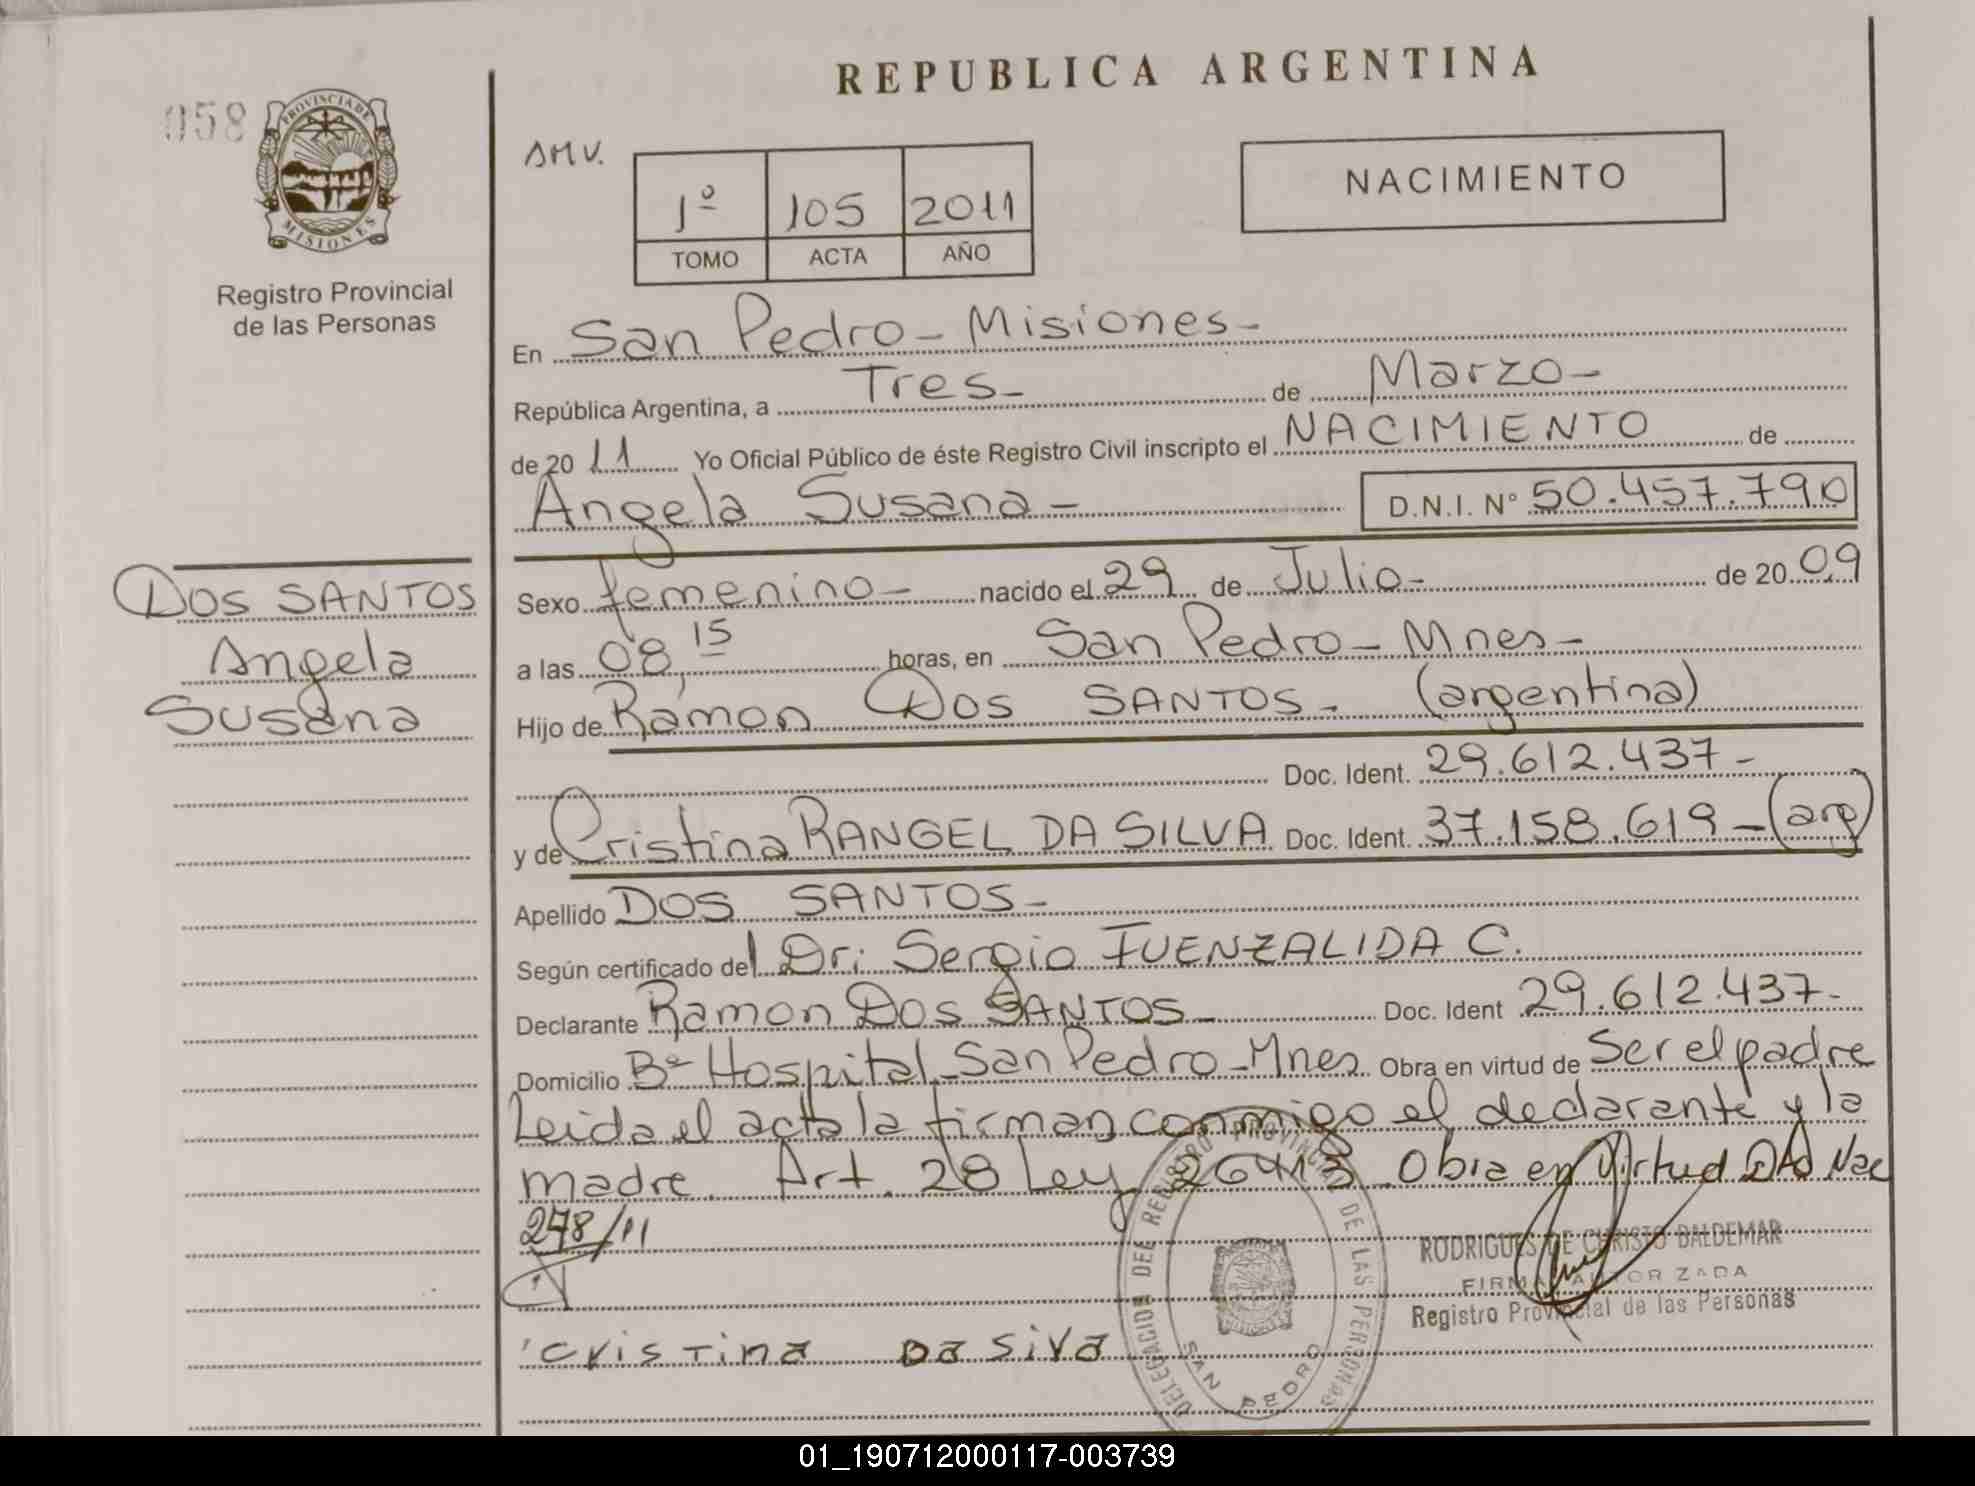 REPUBLICA ARGENTINA
058
PROVINCIA DE MISIONES
Registro Provincial
de las Personas
AMV.
1º 105 2011
TOMO ACTA AÑO
NACIMIENTO
En San Pedro - Misiones -
República Argentina, a Tres - de Marzo -
de 20 11 Yo Oficial Público de éste Registro Civil inscripto el NACIMIENTO de
Angela Susana - D.N.I. Nº 50.457.790
DOS SANTOS
Angela
Susana
Sexo femenino - nacido el 29 de Julio - de 20 09
a las 08,15 horas, en San Pedro - Mnes -
Hijo de Ramon DOS SANTOS - (argentina)
Doc. Ident. 29.612.437 -
y de Cristina RANGEL DA SILVA Doc. Ident. 37.158.619 - (arg)
Apellido DOS SANTOS -
Según certificado del Dr: Sergio FUENZALIDA C.
Declarante Ramon DOS SANTOS - Doc. Ident 29.612.437 -
Domicilio Bº Hospital - San Pedro - Mnes Obra en virtud de Ser el padre
Leida el acta la firman conmigo el declarante y la
madre. Art. 28 Ley 26413. Obra en Virtud Nac
278/11
RODRIGUES DE CHRISTO BALDEMAR
FIRMA AUTORIZADA
Registro Provincial de las Personas
cristina Da siva
DELEGACION DEL REGISTRO PROVINCIAL DE LAS PERSONAS
SAN PEDRO
01_190712000117-003739